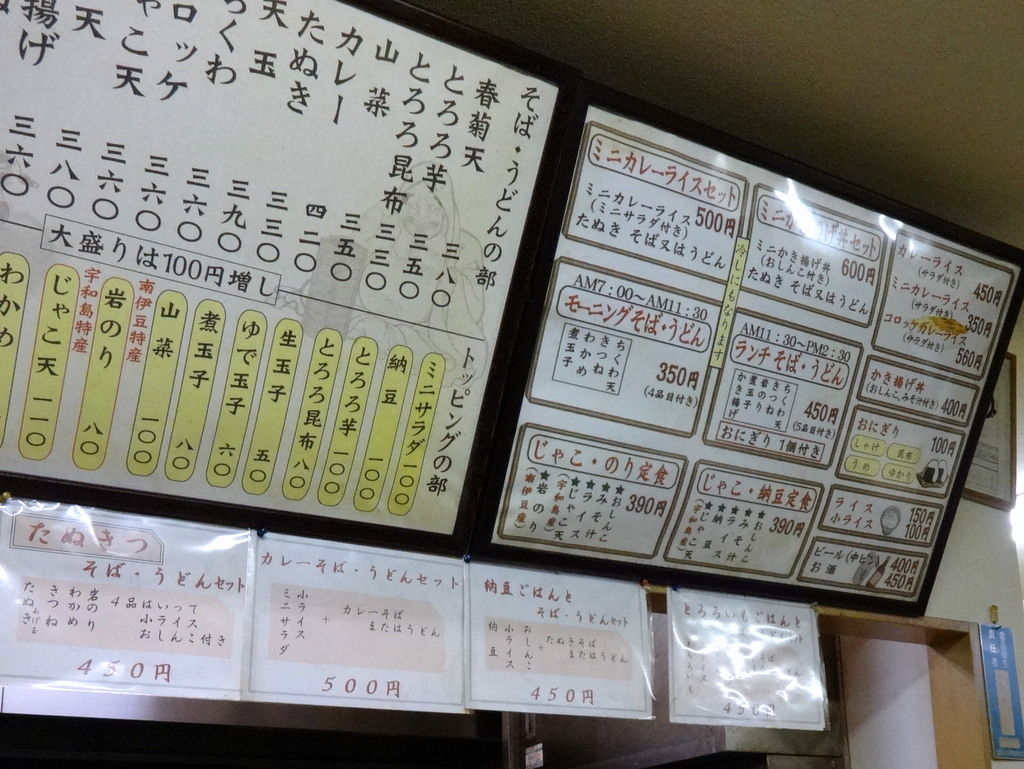 そば・うどんの部
春菊天 三八〇
とろろ芋 三五〇
とろろ昆布 三三〇
山菜 三五〇
カレー 四二〇
たぬき 三三〇
天玉 三九〇
三六〇
コロッケ 三六〇
じゃこ天 三六〇
三八〇
揚げ 三六〇
大盛りは100円増し
トッピングの部
ミニサラダ 一〇〇
納豆 一〇〇
とろろ芋 一〇〇
とろろ昆布 八〇
生玉子 五〇
ゆで玉子 六〇
煮玉子 八〇
山菜 一〇〇
南伊豆特産
岩のり 八〇
宇和島特産
じゃこ天 一一〇
わかめ
ミニカレーライスセット
ミニカレーライス
(ミニサラダ付き)
500円
たぬき そば又はうどん
ミニかき揚げ丼セット
600円
ミニかき揚げ丼
(おしんこ付き)
たぬき そば又はうどん
カレーライス
(サラダ付き) 450円
ミニカレーライス
(サラダ付き) 350円
コロッケカレーライス
(サラダ付き) 560円
冷しにもなります
AM7：00〜AM11：30
モーニングそば・うどん
ちくわ天
きつね
わかめ
煮玉子
350円
(4品目付き)
AM11：30〜PM2：30
ランチそば・うどん
ちくわ天
きつね
岩のり
煮玉子
かき揚げ
450円
(5品目付き)
おにぎり 1個付き
かき揚げ丼
(おしんこ,みそ汁付き) 400円
おにぎり 100円
しゃけ 昆布
うめ ゆかり
じゃこ・のり定食
★おしんこ
★みそ汁
★ライス
★じゃこ天
(宇和島産)
★岩のり
(南伊豆産)
390円
じゃこ・納豆定食
★おしんこ
★みそ汁
★ライス
★納豆
★じゃこ天
(宇和島産)
390円
ライス 150円
小ライス 100円
ビール(中ビン) 400円
お酒 450円
たぬきつ
そば・うどんセット
たぬき
きつね
わかめ
岩のり
4品はいって
小ライス
おしんこ付き
450円
カレーそば・うどんセット
小ライス
ミニサラダ
+
カレーそば
またはうどん
500円
納豆ごはんと
そば・うどんセット
おしんこ
小ライス
納豆
+
たぬきそば
またはうどん
450円
とろろいもごはんと
450円